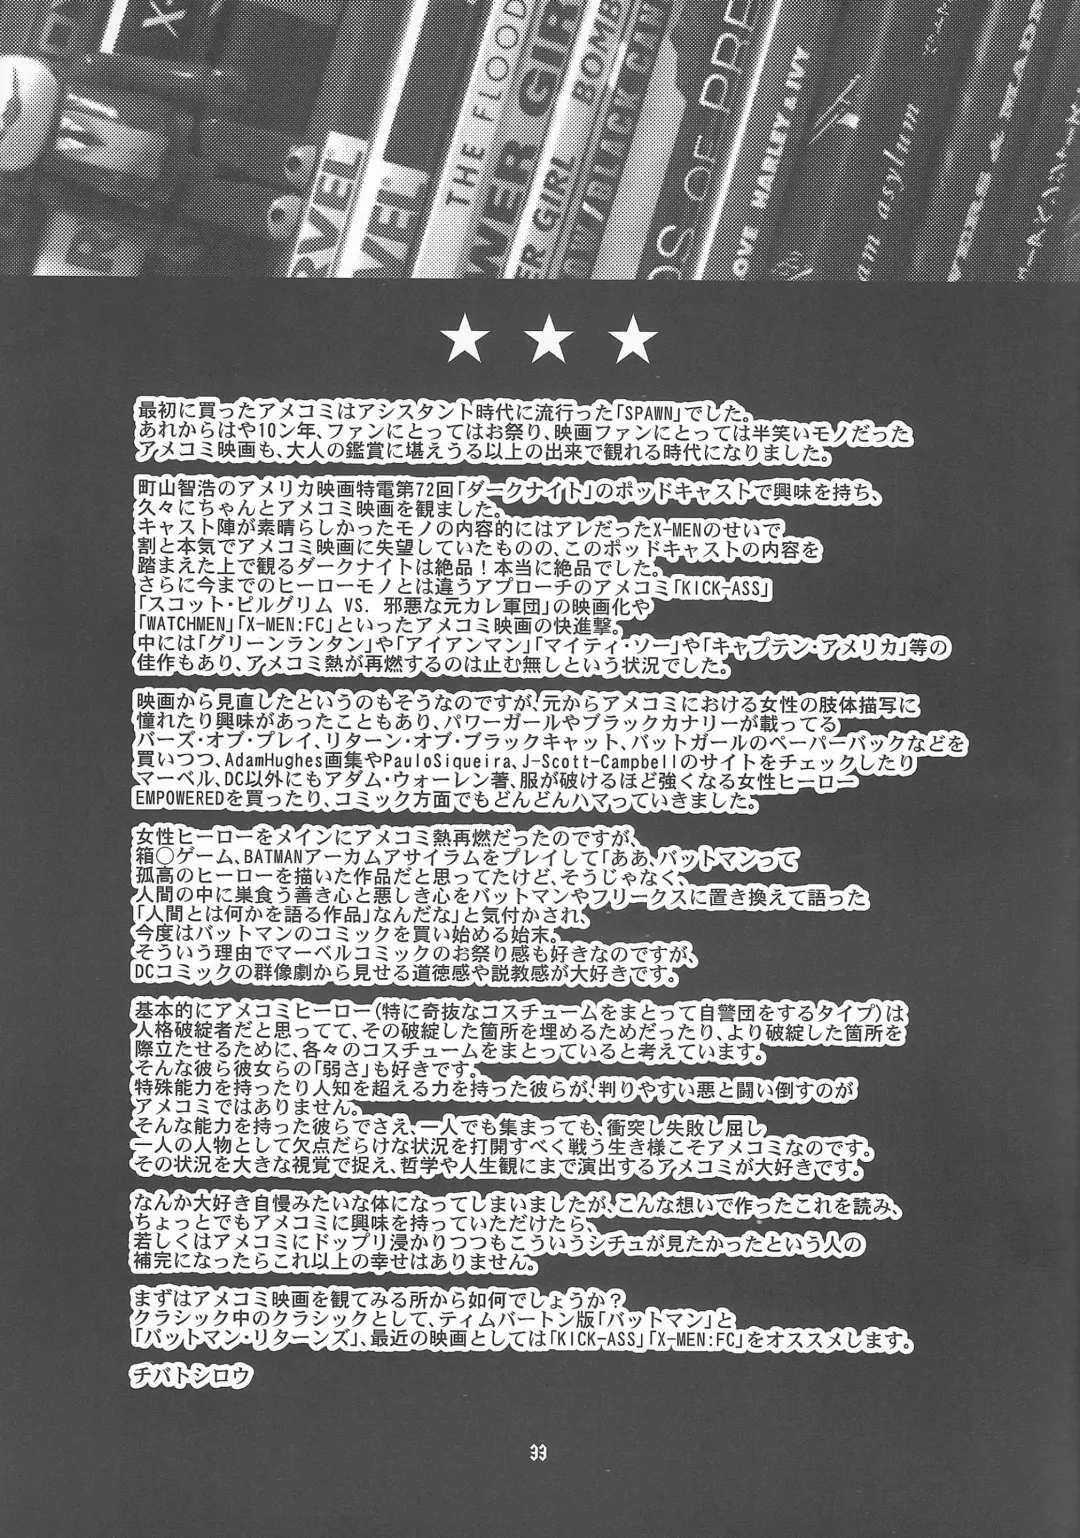 X-
RVEL
VEL
THE FLOOD
WER GIR
ER GIRL BOMB
AW/BLACK CAN
OS OF PRE
OVE HARLEY & IVY
am asylum
VERS &
★ ★ ★
最初に買ったアメコミはアシスタント時代に流行った｢SPAWN｣でした。
あれからはや10ン年､ファンにとってはお祭り､映画ファンにとっては半笑いモノだった
アメコミ映画も､大人の鑑賞に堪えうる以上の出来で観れる時代になりました。
町山智浩のアメリカ映画特電第72回｢ダークナイト｣のポッドキャストで興味を持ち､
久々にちゃんとアメコミ映画を観ました。
キャスト陣が素晴らしかったモノの内容的にはアレだったX-MENのせいで
割と本気でアメコミ映画に失望していたものの､このポッドキャストの内容を
踏まえた上で観るダークナイトは絶品！本当に絶品でした。
さらに今までのヒーローモノとは違うアプローチのアメコミ｢KICK-ASS｣
｢スコット･ピルグリム VS. 邪悪な元カレ軍団｣の映画化や
｢WATCHMEN｣｢X-MEN:FC｣といったアメコミ映画の快進撃。
中には｢グリーンランタン｣や｢アイアンマン｣｢マイティ･ソー｣や｢キャプテン･アメリカ｣等の
佳作もあり､アメコミ熱が再燃するのは止む無しという状況でした。
映画から見直したというのもそうなのですが､元からアメコミにおける女性の肢体描写に
憧れたり興味があったこともあり､パワーガールやブラックカナリーが載ってる
バーズ･オブ･プレイ､リターン･オブ･ブラックキャット､バットガールのペーパーバックなどを
買いつつ､AdamHughes画集やPauloSiqueira､J-Scott-Campbellのサイトをチェックしたり
マーベル､DC以外にもアダム･ウォーレン著､服が破けるほど強くなる女性ヒーロー
EMPOWEREDを買ったり､コミック方面でもどんどんハマっていきました。
女性ヒーローをメインにアメコミ熱再燃だったのですが､
箱○ゲーム､BATMANアーカムアサイラムをプレイして｢ああ､バットマンって
孤高のヒーローを描いた作品だと思ってたけど､そうじゃなく､
人間の中に巣食う善き心と悪しき心をバットマンやフリークスに置き換えて語った
｢人間とは何かを語る作品｣なんだな｣と気付かされ､
今度はバットマンのコミックを買い始める始末。
そういう理由でマーベルコミックのお祭り感も好きなのですが､
DCコミックの群像劇から見せる道徳感や説教感が大好きです。
基本的にアメコミヒーロー(特に奇抜なコスチュームをまとって自警団をするタイプ)は
人格破綻者だと思ってて､その破綻した箇所を埋めるためだったり､より破綻した箇所を
際立たせるために､各々のコスチュームをまとっていると考えています。
そんな彼ら彼女らの｢弱さ｣も好きです。
特殊能力を持ったり人知を超える力を持った彼らが､判りやすい悪と闘い倒すのが
アメコミではありません。
そんな能力を持った彼らでさえ､一人でも集まっても､衝突し失敗し屈し
一人の人物として欠点だらけな状況を打開すべく戦う生き様こそアメコミなのです。
その状況を大きな視覚で捉え､哲学や人生観にまで演出するアメコミが大好きです。
なんか大好き自慢みたいな体になってしまいましたが､こんな想いで作ったこれを読み､
ちょっとでもアメコミに興味を持っていただけたら､
若しくはアメコミにドップリ浸かりつつもこういうシチュが見たかったという人の
補完になったらこれ以上の幸せはありません。
まずはアメコミ映画を観てみる所から如何でしょうか？
クラシック中のクラシックとして､ティムバートン版｢バットマン｣と
｢バットマン･リターンズ｣､最近の映画としては｢KICK-ASS｣｢X-MEN:FC｣をオススメします。
チバトシロウ
33